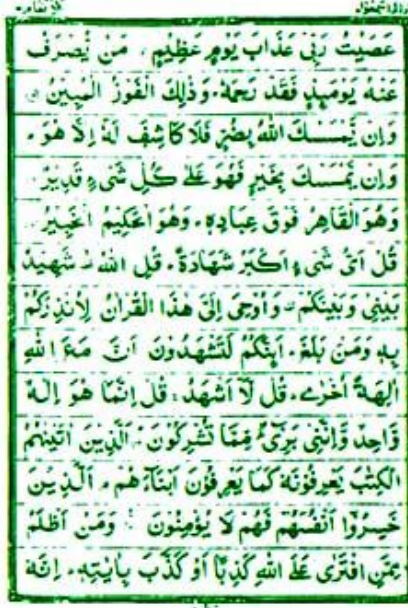 عَصَيْتُ رَبِّيْ عَذَابَ يَوْمٍ عَظِيْمٍ ۝ مَنْ يُّصْرَفْ
عَنْهُ يَوْمَئِذٍ فَقَدْ رَحِمَهٗ ؕ وَذٰلِكَ الْفَوْزُ الْمُبِيْنُ ۝
وَاِنْ يَّمْسَسْكَ اللّٰهُ بِضُرٍّ فَلَا كَاشِفَ لَهٗۤ اِلَّا هُوَ ؕ
وَاِنْ يَّمْسَسْكَ بِخَيْرٍ فَهُوَ عَلٰى كُلِّ شَىْءٍ قَدِيْرٌ ۝
وَهُوَ الْقَاهِرُ فَوْقَ عِبَادِهٖ ؕ وَهُوَ الْحَكِيْمُ الْخَبِيْرُ ۝
قُلْ اَىُّ شَىْءٍ اَكْبَرُ شَهَادَةً ؕ قُلِ اللّٰهُ ۟ شَهِيْدٌۢ
بَيْنِىْ وَبَيْنَكُمْ ۟ وَاُوْحِىَ اِلَىَّ هٰذَا الْقُرْاٰنُ لِاُنْذِرَكُمْ
بِهٖ وَمَنْۢ بَلَغَ ؕ اَئِنَّكُمْ لَتَشْهَدُوْنَ اَنَّ مَعَ اللّٰهِ
اٰلِهَةً اُخْرٰى ؕ قُلْ لَّاۤ اَشْهَدُ ۚ قُلْ اِنَّمَا هُوَ اِلٰهٌ
وَّاحِدٌ وَّاِنَّنِىْ بَرِىْٓءٌ مِّمَّا تُشْرِكُوْنَ ۘ اَلَّذِيْنَ اٰتَيْنٰهُمُ
الْكِتٰبَ يَعْرِفُوْنَهٗ كَمَا يَعْرِفُوْنَ اَبْنَآءَهُمْ ۘ اَلَّذِيْنَ
خَسِرُوْۤا اَنْفُسَهُمْ فَهُمْ لَا يُؤْمِنُوْنَ ۝ وَمَنْ اَظْلَمُ
مِمَّنِ افْتَرٰى عَلَى اللّٰهِ كَذِبًا اَوْ كَذَّبَ بِاٰيٰتِهٖ ؕ اِنَّهٗ